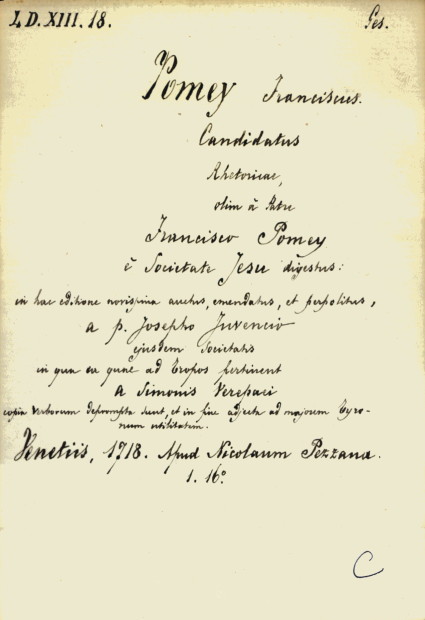 L D. XIII. 18. Ges.
Pomey Franciscus.
Candidatus
Rhetoricae,
olim à Patre
Francisco Pomey
è Societate Jesu digestus:
in hac editione novissima auctus, emendatus, et perpolitus,
a p. Josepho Juvencio
ejusdem Societatis
in qua ea quae ad tropos pertinent
a Simonis Verepaei
copia Verborum deprompta sunt, et in fine adjecta ad majorem Tyro-
num utilitatem.
Venetiis, 1718. Apud Nicolaum Pezzana.
1. 16°
C